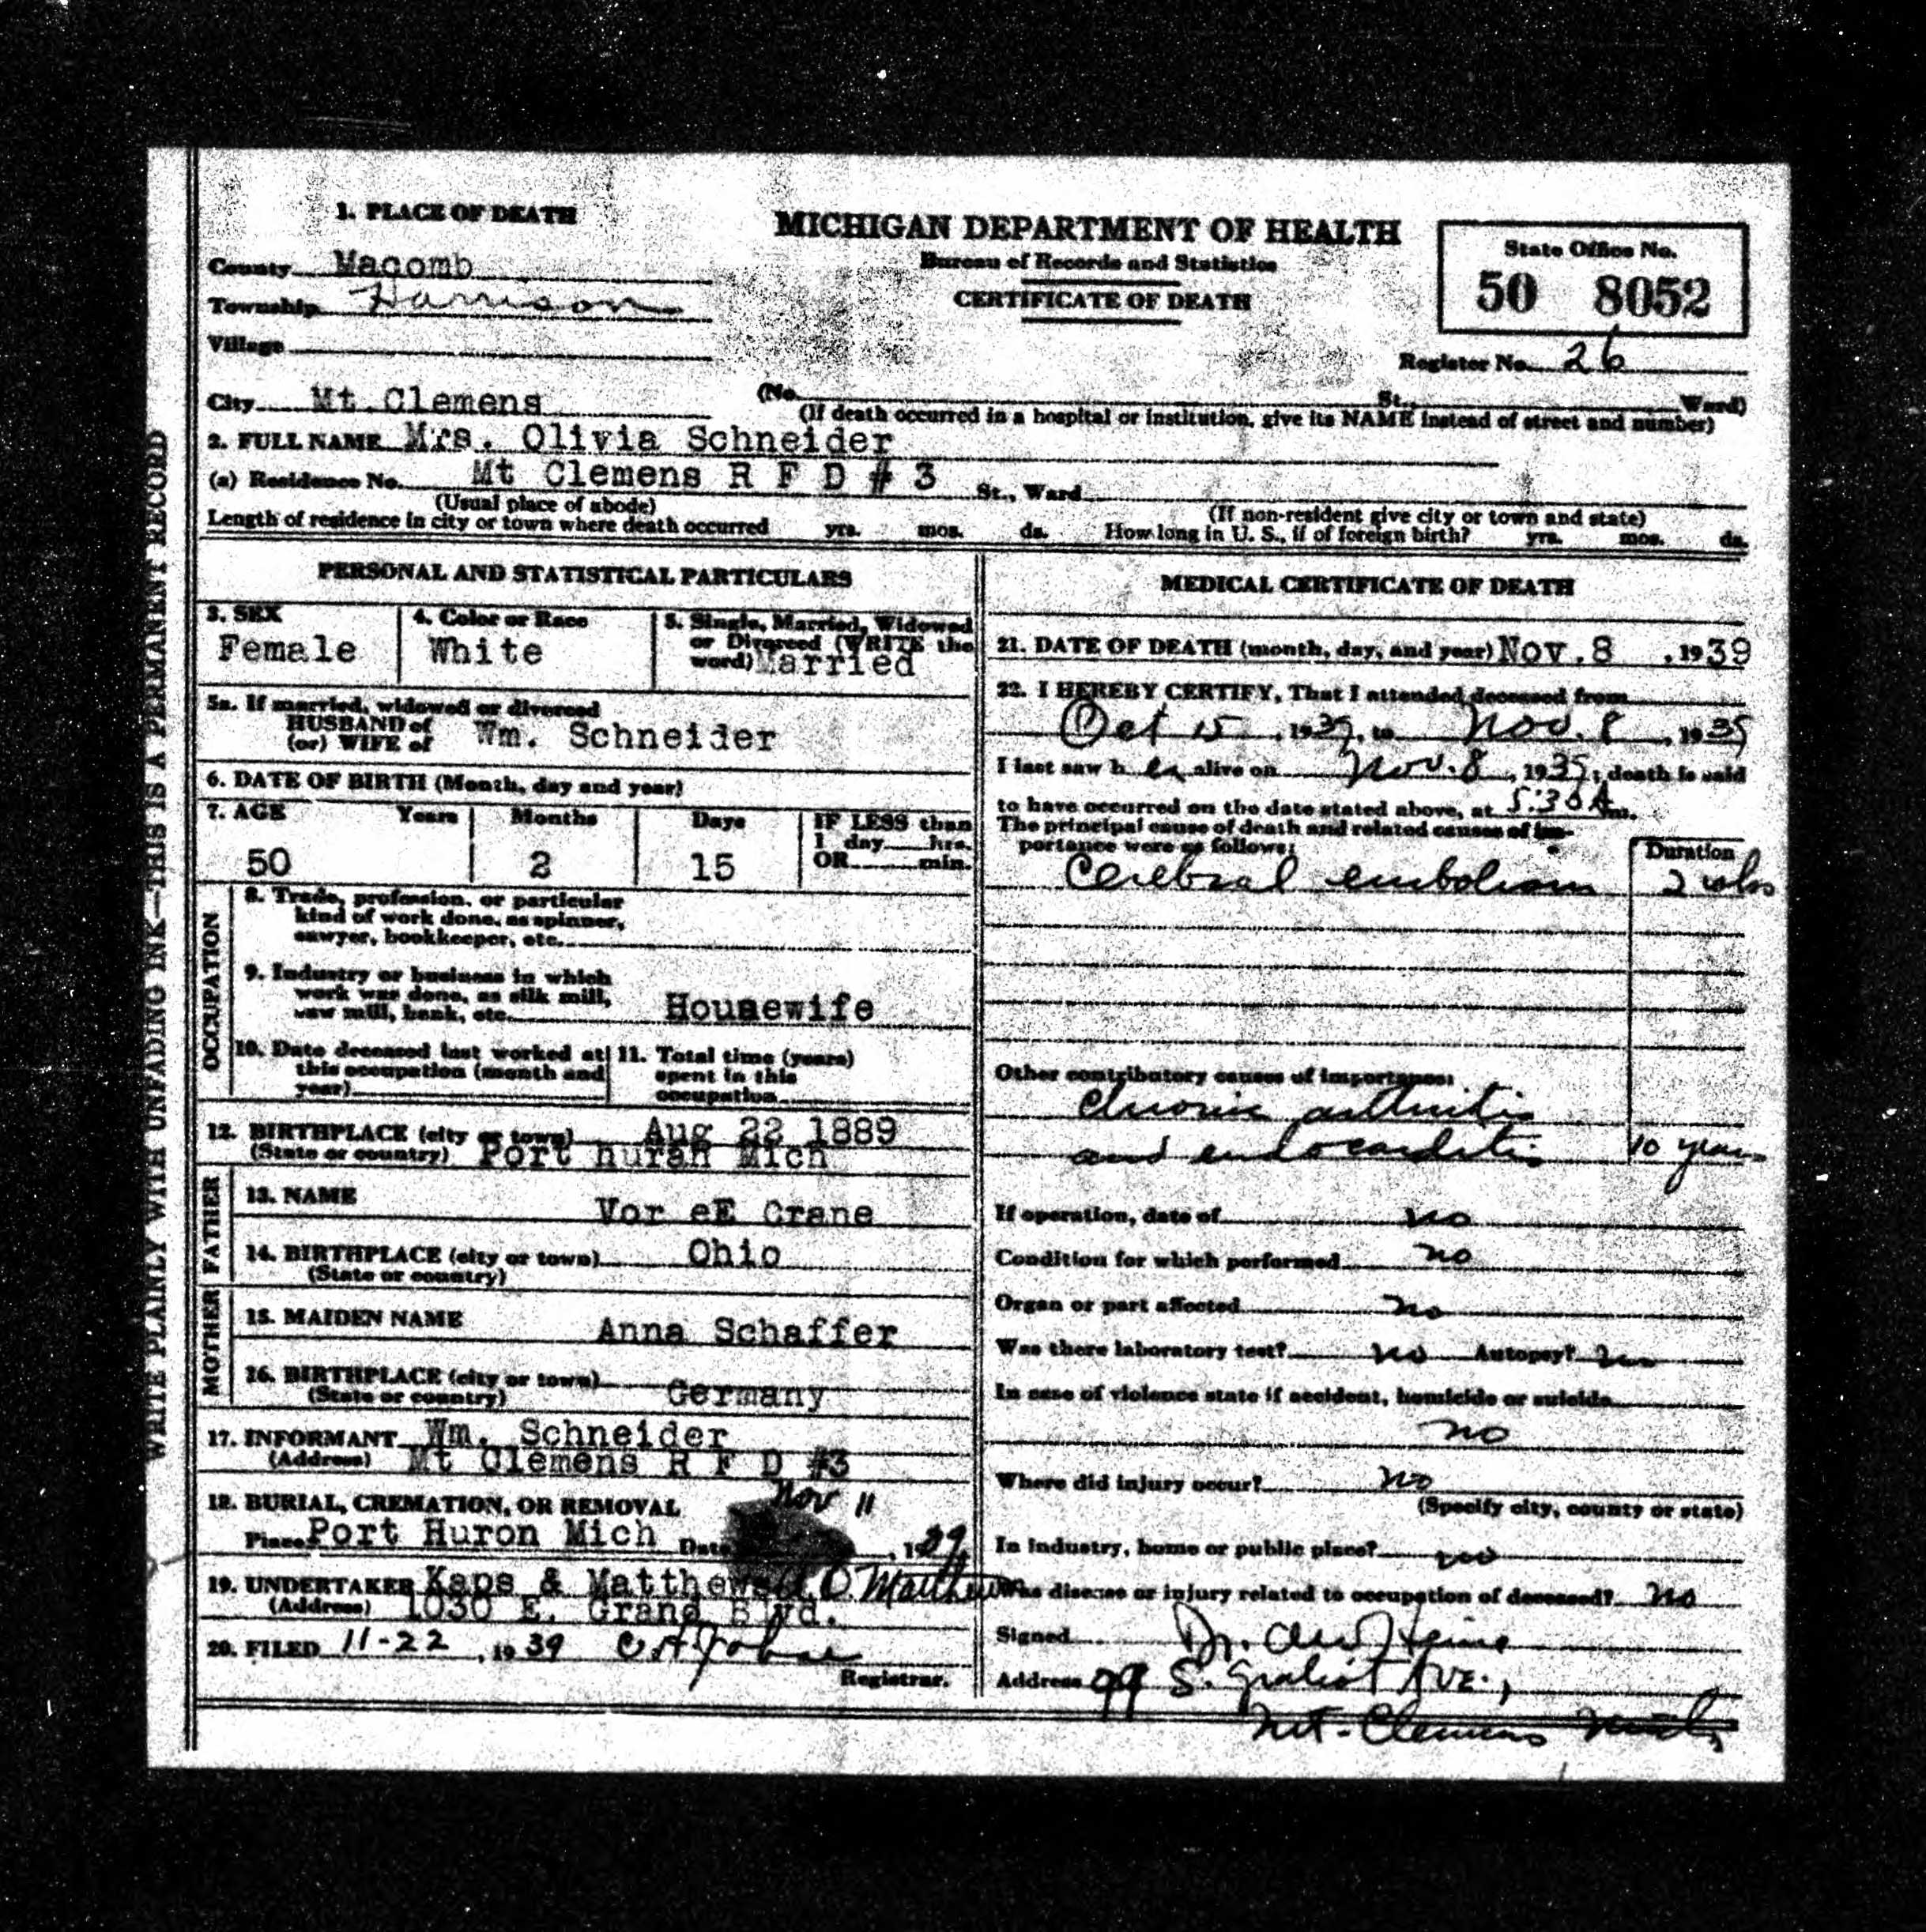 1. PLACE OF DEATH
MICHIGAN DEPARTMENT OF HEALTH
Bureau of Records and Statistics
CERTIFICATE OF DEATH
State Office No.
50 8052
Register No. 26
County Macomb
Township Harrison
Village
City Mt. Clemens (No. St., Ward)
(If death occurred in a hospital or institution, give its NAME instead of street and number)
2. FULL NAME Mrs. Olivia Schneider
(a) Residence No. Mt Clemens R F D # 3 St., Ward
(Usual place of abode) (If non-resident give city or town and state)
Length of residence in city or town where death occurred yrs. mos. ds. How long in U. S., if of foreign birth? yrs. mos. ds.
WRITE PLAINLY WITH UNFADING INK—THIS IS A PERMANENT RECORD
PERSONAL AND STATISTICAL PARTICULARS
3. SEX
Female
4. Color or Race
White
5. Single, Married, Widowed
or Divorced (WRITE the
word) Married
5a. If married, widowed or divorced
HUSBAND of
(or) WIFE of Wm. Schneider
6. DATE OF BIRTH (Month, day and year)
7. AGE Years Months Days
50 2 15
IF LESS than
1 day hrs.
OR min.
OCCUPATION
8. Trade, profession, or particular
kind of work done, as spinner,
sawyer, bookkeeper, etc.
9. Industry or business in which
work was done, as silk mill,
saw mill, bank, etc. Housewife
10. Date deceased last worked at
this occupation (month and
year)
11. Total time (years)
spent in this
occupation
12. BIRTHPLACE (city or town) Aug 22 1889
(State or country) Port huran Mich
FATHER
13. NAME Vor eE Crane
14. BIRTHPLACE (city or town) Ohio
(State or country)
MOTHER
15. MAIDEN NAME Anna Schaffer
16. BIRTHPLACE (city or town)
(State or country) Germany
17. INFORMANT Wm. Schneider
(Address) Mt Clemens R F D #3
18. BURIAL, CREMATION, OR REMOVAL Nov 11
Place Port Huron Mich Date , 1939
19. UNDERTAKER Kaps & Matthews
(Address) 1030 E. Grand Blvd.
20. FILED 11-22, 1939
Registrar.
MEDICAL CERTIFICATE OF DEATH
21. DATE OF DEATH (month, day, and year) Nov. 8, 1939
22. I HEREBY CERTIFY, That I attended deceased from
Oct 15, 1939, to Nov. 8, 1939
I last saw h er alive on Nov. 8, 1939; death is said
to have occurred on the date stated above, at 5:30 A m.
The principal cause of death and related causes of im-
portance were as follows:
Duration
Cerebral embolism 2 wks
Other contributory causes of importance:
Chronic arthritis
and endocarditis 10 years
If operation, date of no
Condition for which performed no
Organ or part affected no
Was there laboratory test? no Autopsy? no
In case of violence state if accident, homicide or suicide
no
Where did injury occur? no
(Specify city, county or state)
In industry, home or public place? no
Was disease or injury related to occupation of deceased? no
Signed Dr.
Address 99 S. Gratiot Ave.,
Mt. Clemens Mich